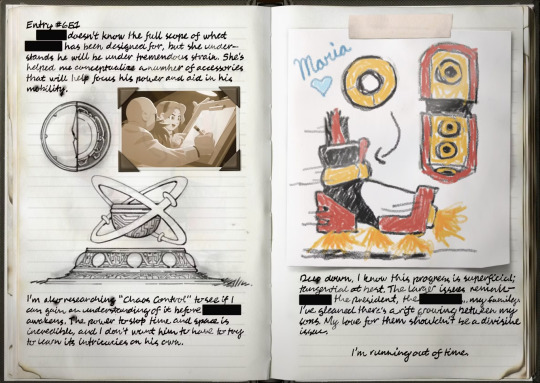 Entry #651
doesn't know the full scope of what
has been designed for, but she under-
stands he will be under tremendous strain. She's
helped me conceptualize a number of accessories
that will help focus his power and aid in his
mobility.
I'm also researching "Chaos Control" to see if I
can gain an understanding of it before
awakens. The power to stop time and space is
incredible, and I don't want him to have to try
to learn its intricacies on his own.
Maria
Deep down, I know this progress is superficial;
tangential at best. The larger issues remain—
the president, the
my family.
I've gleaned there's a rift growing between my
sons. My love for them shouldn't be a divisive
issue.
I'm running out of time.